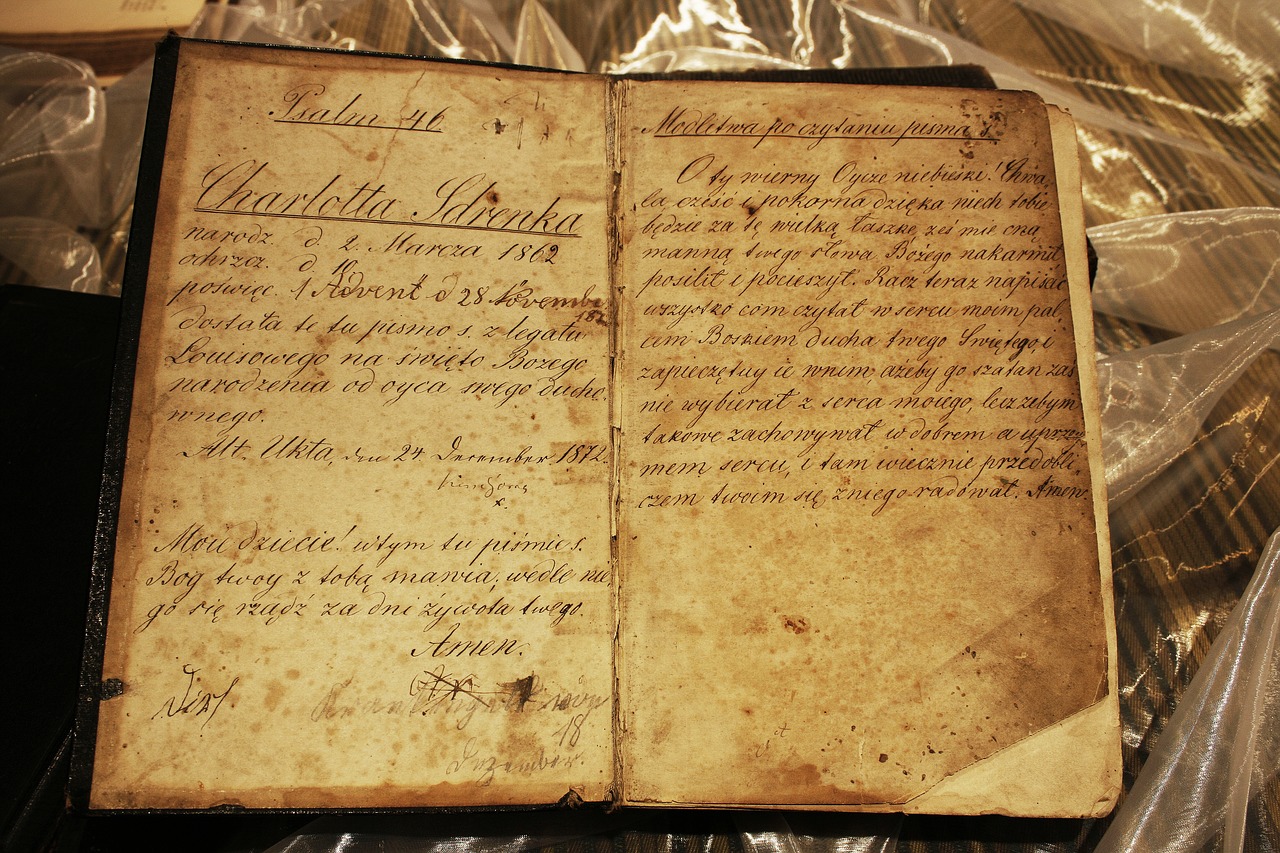 Psalm 46
Charlotta Sdrenka
narodz. d. 2. Marcza 1862
ochrzcz. d. 10.
poswięc. 1 Advent d 28 Novembr
187
dostała te tu pismo s. z legatu
Louisowego na święto Bożego
narodzenia od oyca swego ducho,
wnego.
Alt. Ukta, den 24 December 1872.
Moie dziecie! wtym tu piśmie s.
Bog twoy z tobą mawia, wedle nie,
go się rządź za dni żywota twego.
Amen.
18
Dezember
Modlitwa po czytaniu pisma s.
O ty wierny Oycze niebieski! Chwa,
ła, cześć i pokorna dzięka niech tobie
będzie za tę wielką łaskę, żeś mie
manną twego słowa Bożego nakarmił
posilił i pocieszył. Racz teraz napisać
wszystko com czytał w sercu moim pal,
cem Boskiem ducha twego Swiętego i
zapieczętuy ie wnim, ażeby go szatan zas
nie wybierał z serca moiego, lecz żebym
takowe zachowywał w dobrem a uprzey
mem sercu, i tam wiecznie przed obli,
czem twoim się zniego radował. Amen.